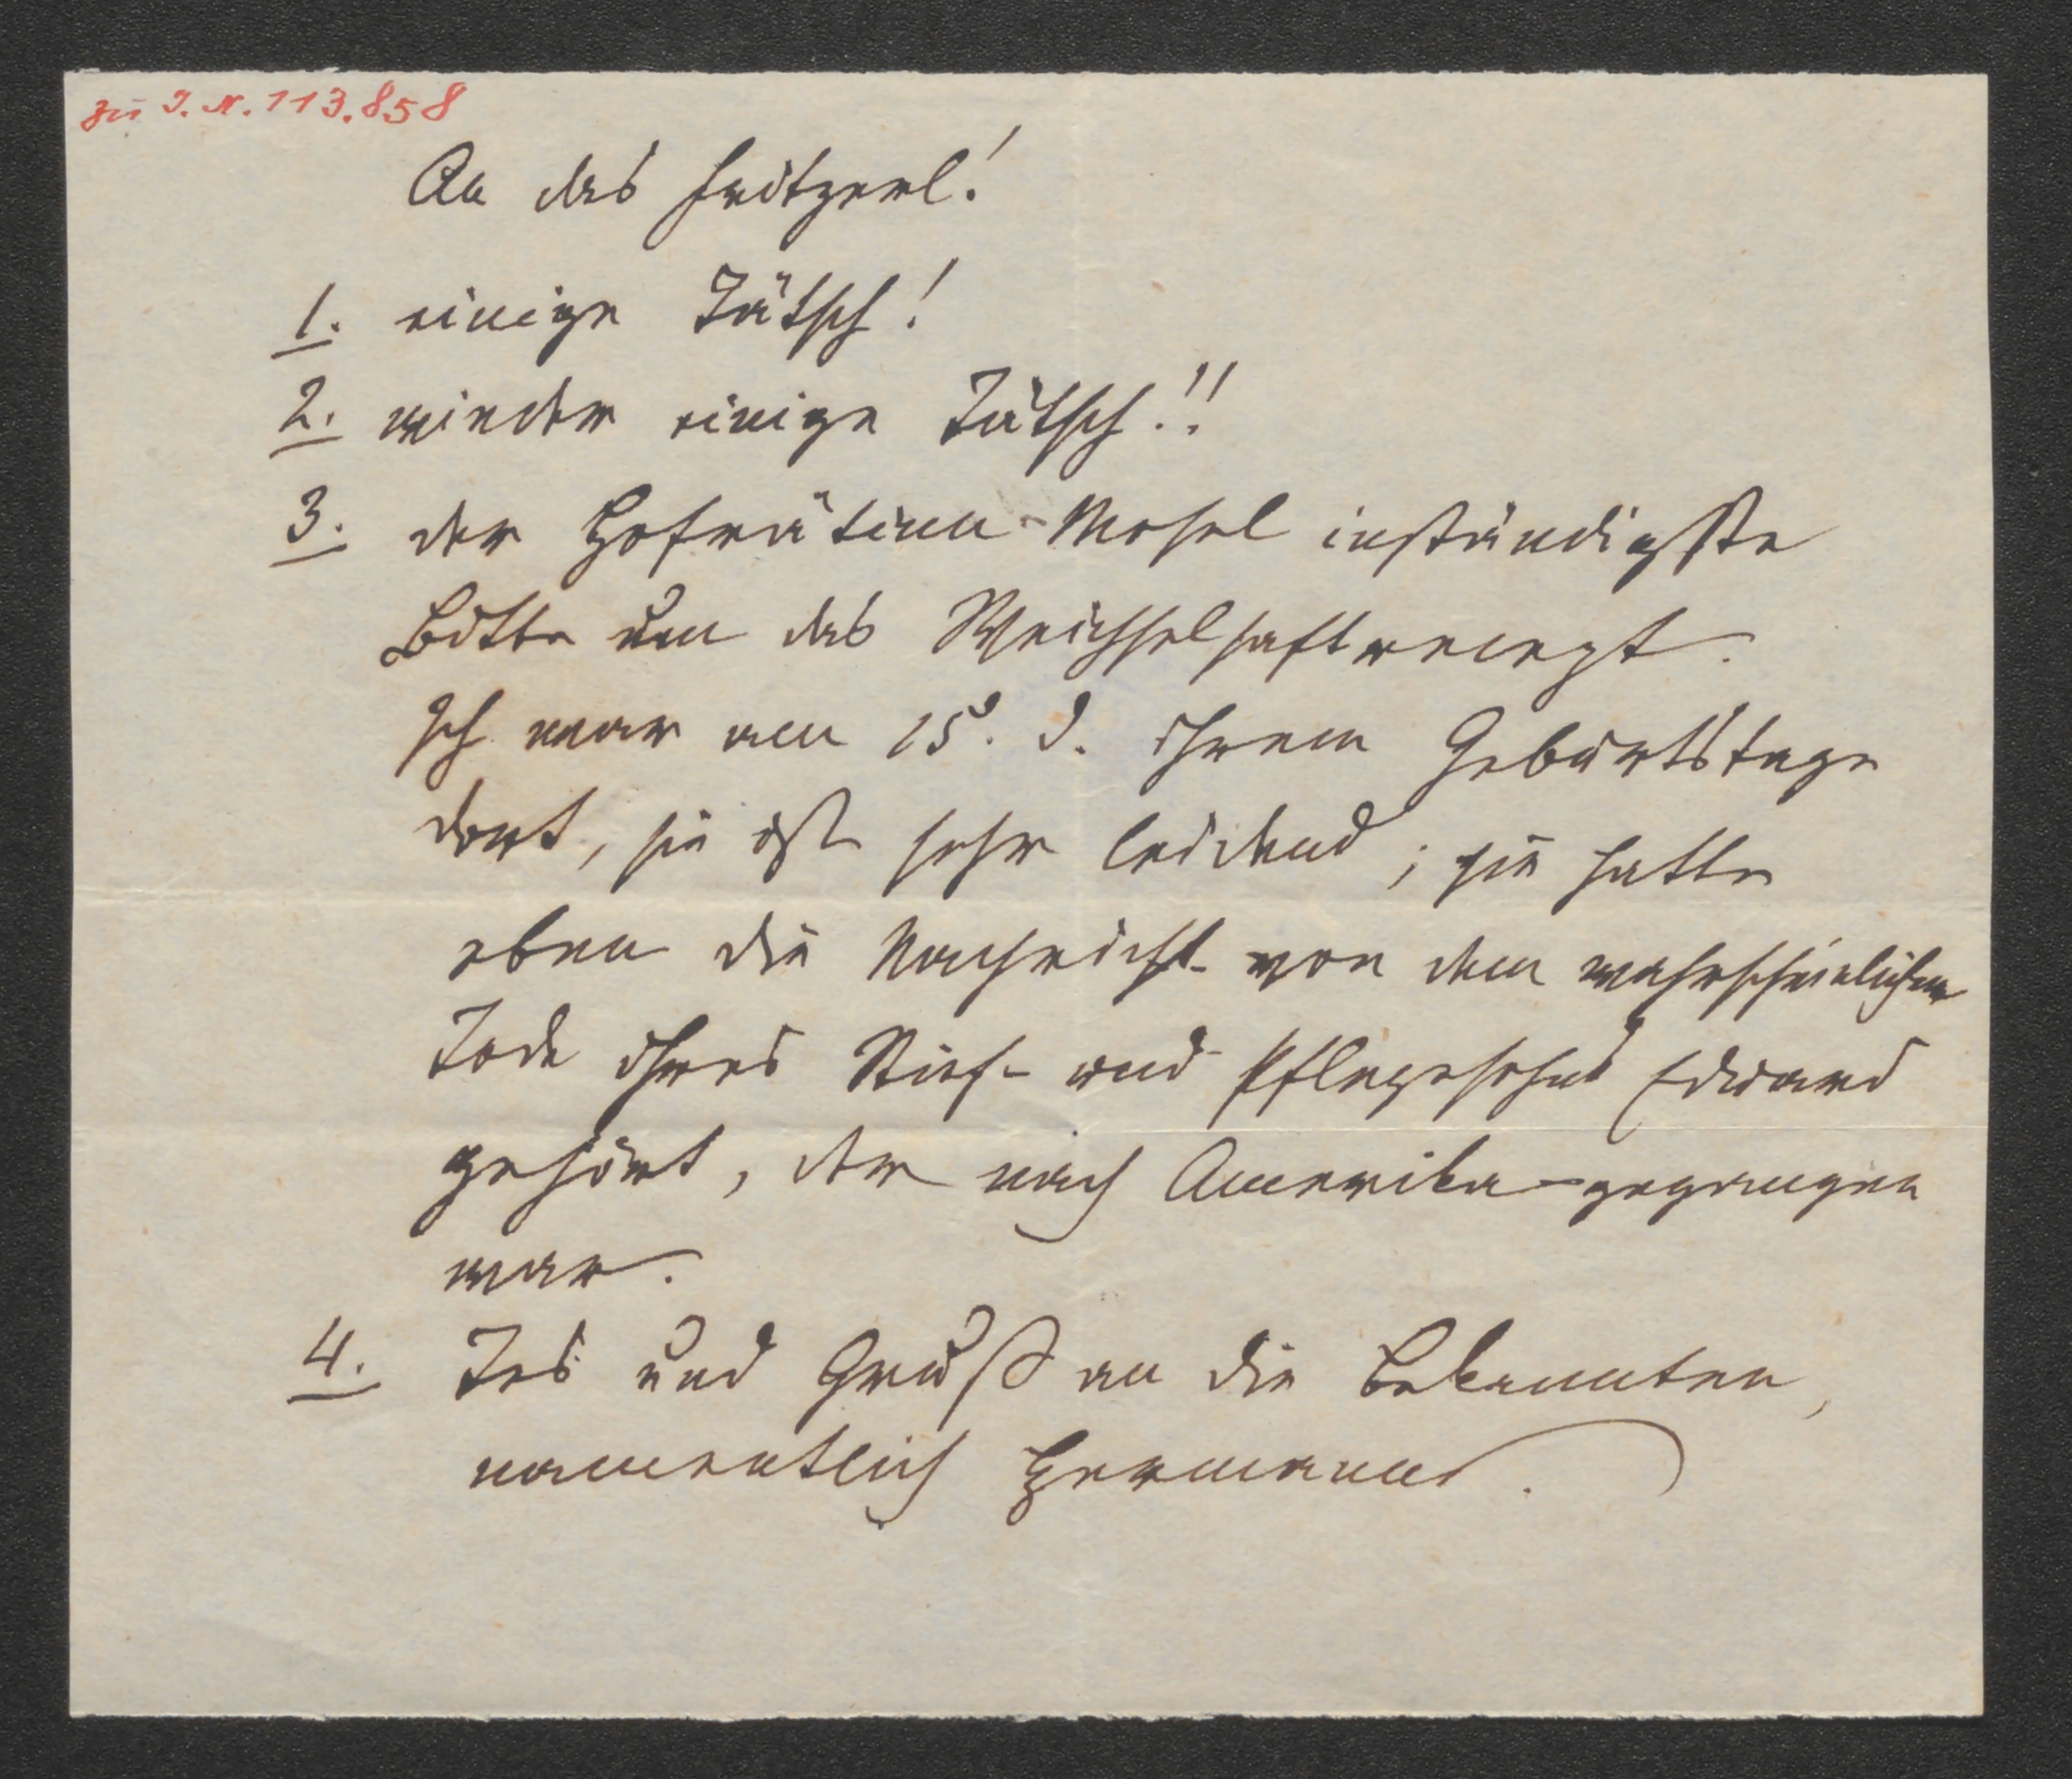 zu I. N. 113.858
An das Fritzerl!
1. einige Tätsch!
2. wieder einige Tätsch!!
3. der Hofrätinn Mosel inständigste
Bitte um das Weichselsaftrecept.
Ich war am 15. d. ihrem Geburtstage
dort, sie ist sehr leidend; sie hatte
eben die Nachricht von dem wahrscheinlichen
Tode ihres Stief- und Pflegesohns Eduard
gehört, der nach Amerika gegangen
war.
4. und Gruß an die Bekannten,
namentlich Hermann.